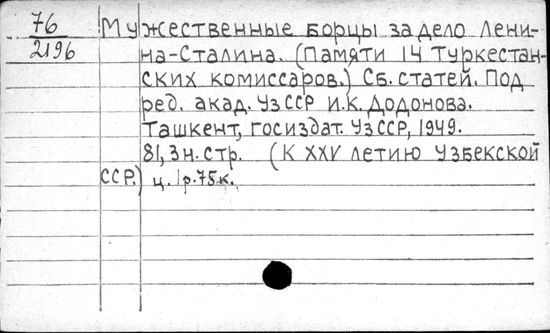 76 Мужественные борцы за дело Лени-
2196 на-Сталина. (Памяти 14 Туркестан-
ских комиссаров.) Сб. статей. Под
ред. акад. УзССР И.К. Додонова.
Ташкент, Госиздат. УзССР, 1949.
81, 3 н. стр. (К XXV летию Узбекской
ССР.) ц. 1р.75к.